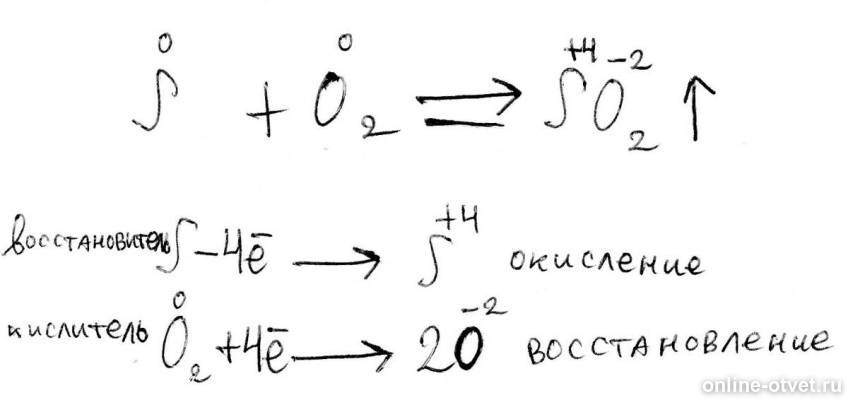 S⁰ + O₂⁰ ⇒ S⁺⁴O₂⁻² ↑
восстановитель S – 4ē → S⁺⁴ окисление
кислитель O₂⁰ + 4ē → 2O⁻² восстановление
online-otvet.ru